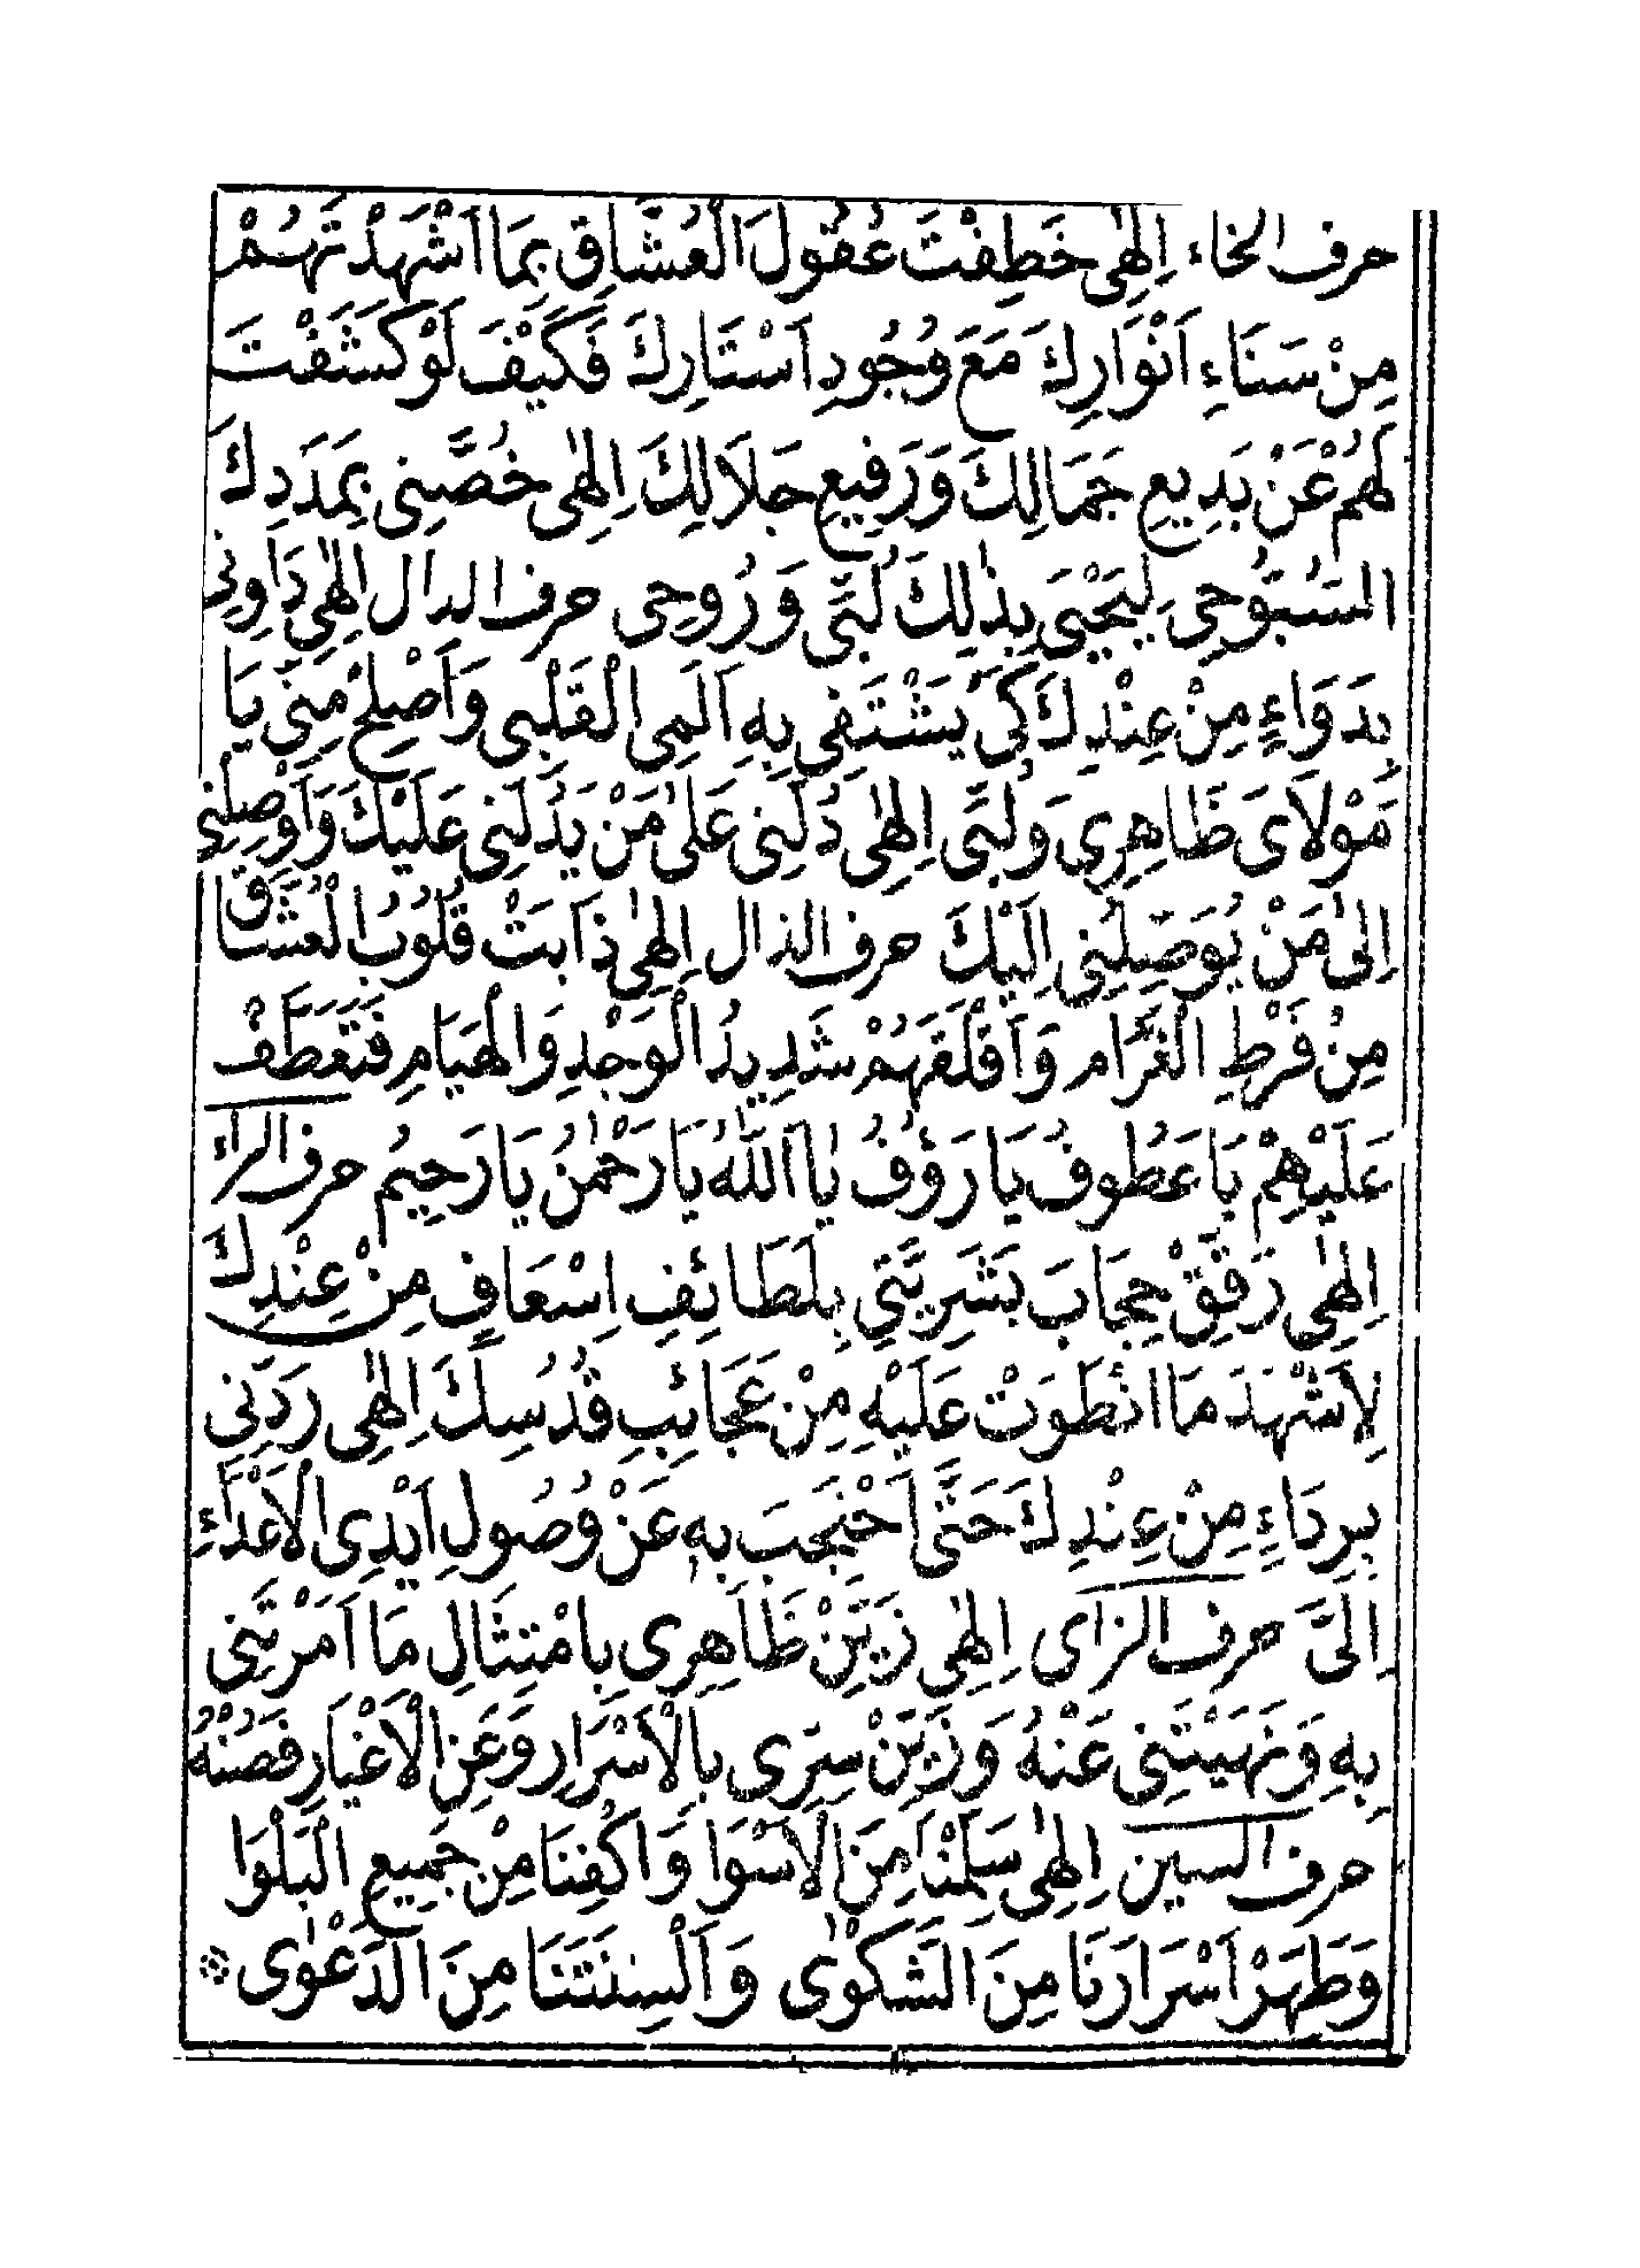 حرف الخاء اِلٰهِى خَطِفْتَ عُقُولَ الْعُشَّاقِ بِمَا اَشْهَدْتَهُمْ
مِنْ سَنَاءِ اَنْوَارِكَ مَعَ وُجُودِ اَسْتَارِكَ فَكَيْفَ لَوْ كَشَفْتَ
لَهُمْ عَنْ بَدِيعِ جَمَالِكَ وَرَفِيعِ جَلَالِكَ اِلٰهِى خُصَّنِى بِمَدَدِكَ
السُّبُّوحِى لِيَحْيَى بِذٰلِكَ لُبِّى وَرُوحِى حرف الدال اِلٰهِى دَاوِنِى
بِدَوَاءٍ مِنْ عِنْدِكَ كَىْ يَشْتَفِى بِهِ اَلَمِى الْقَلْبِى وَاَصْلِحْ مِنِّى يَا
مَوْلَاىَ ظَاهِرِى وَلُبِّى اِلٰهِى دُلَّنِى عَلٰى مَنْ يَدُلُّنِى عَلَيْكَ وَاَوْصِلْنِى
اِلٰى مَنْ يُوَصِّلُنِى اِلَيْكَ حرف الذال اِلٰهِى ذَابَتْ قُلُوبُ الْعُشَّاقِ
مِنْ فَرْطِ الْغَرَامِ وَاَقْلَقَهُمْ شَدِيدُ الْوَجْدِ وَالْهَيَامِ فَتَعَطَّفْ
عَلَيْهِمْ يَا عَطُوفُ يَا رَؤُفُ يَا اَللّٰهُ يَا رَحْمٰنُ يَا رَحِيمُ حرف الراء
اِلٰهِى رَقِّقْ حِجَابَ بَشَرِيَّتِى بِلَطَائِفِ اِسْعَافٍ مِنْ عِنْدِكَ
لِاَشْهَدَ مَا انْطَوَتْ عَلَيْهِ مِنْ عَجَائِبِ قُدْسِكَ اِلٰهِى رَدِّنِى
بِرِدَاءٍ مِنْ عِنْدِكَ حَتّٰى اَحْتَجِبَ بِهِ عَنْ وُصُولِ اَيْدِى الْاَعْدَاءِ
اِلَىَّ حرف الزاى اِلٰهِى زَيِّنْ ظَاهِرِى بِامْتِثَالِ مَا اَمَرْتَنِى
بِهِ وَنَهَيْتَنِى عَنْهُ وَزَيِّنْ سِرِّى بِالْاَسْرَارِ وَعَنِ الْاَغْيَارِ فَصُنْهُ
حرف السين اِلٰهِى سَلِّمْنَا مِنَ الْاَسْوَا وَاكْفِنَا مِنْ جَمِيعِ الْبَلْوَا
وَطَهِّرْ اَسْرَارَنَا مِنَ الشَّكْوٰى وَاَلْسِنَتَنَا مِنَ الدَّعْوٰى